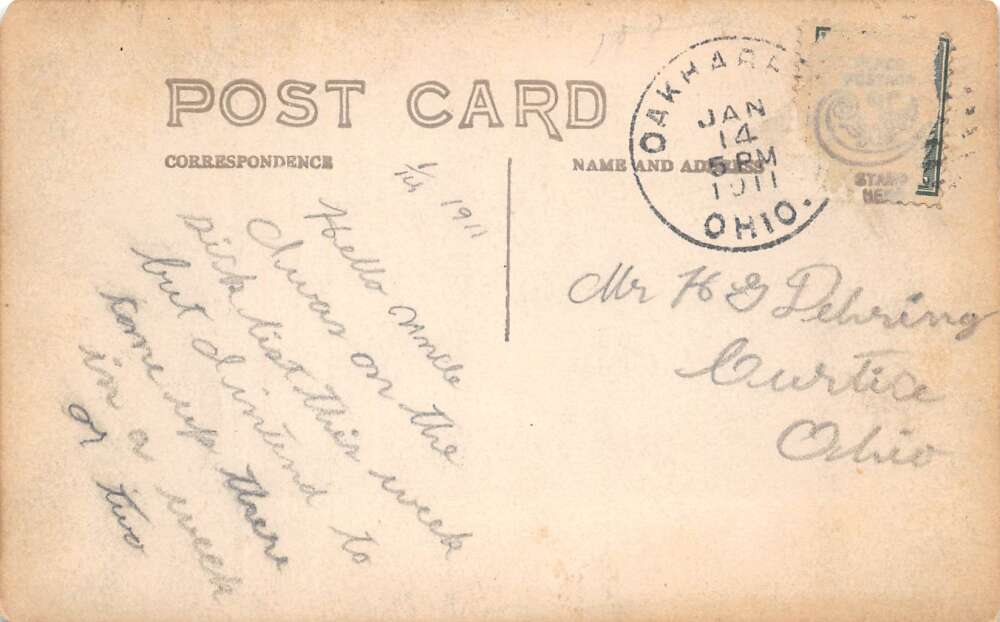 POST CARD
CORRESPONDENCE
NAME AND ADDRESS
OAKHAR
JAN
14
5 PM
1911
OHIO.
STAMP
HERE
1/14 1911
Hello Uncle
I was on the
sick list this week
but I intend to
come up there
in a week
or two
Mr H G Dehring
Curtice
Ohio